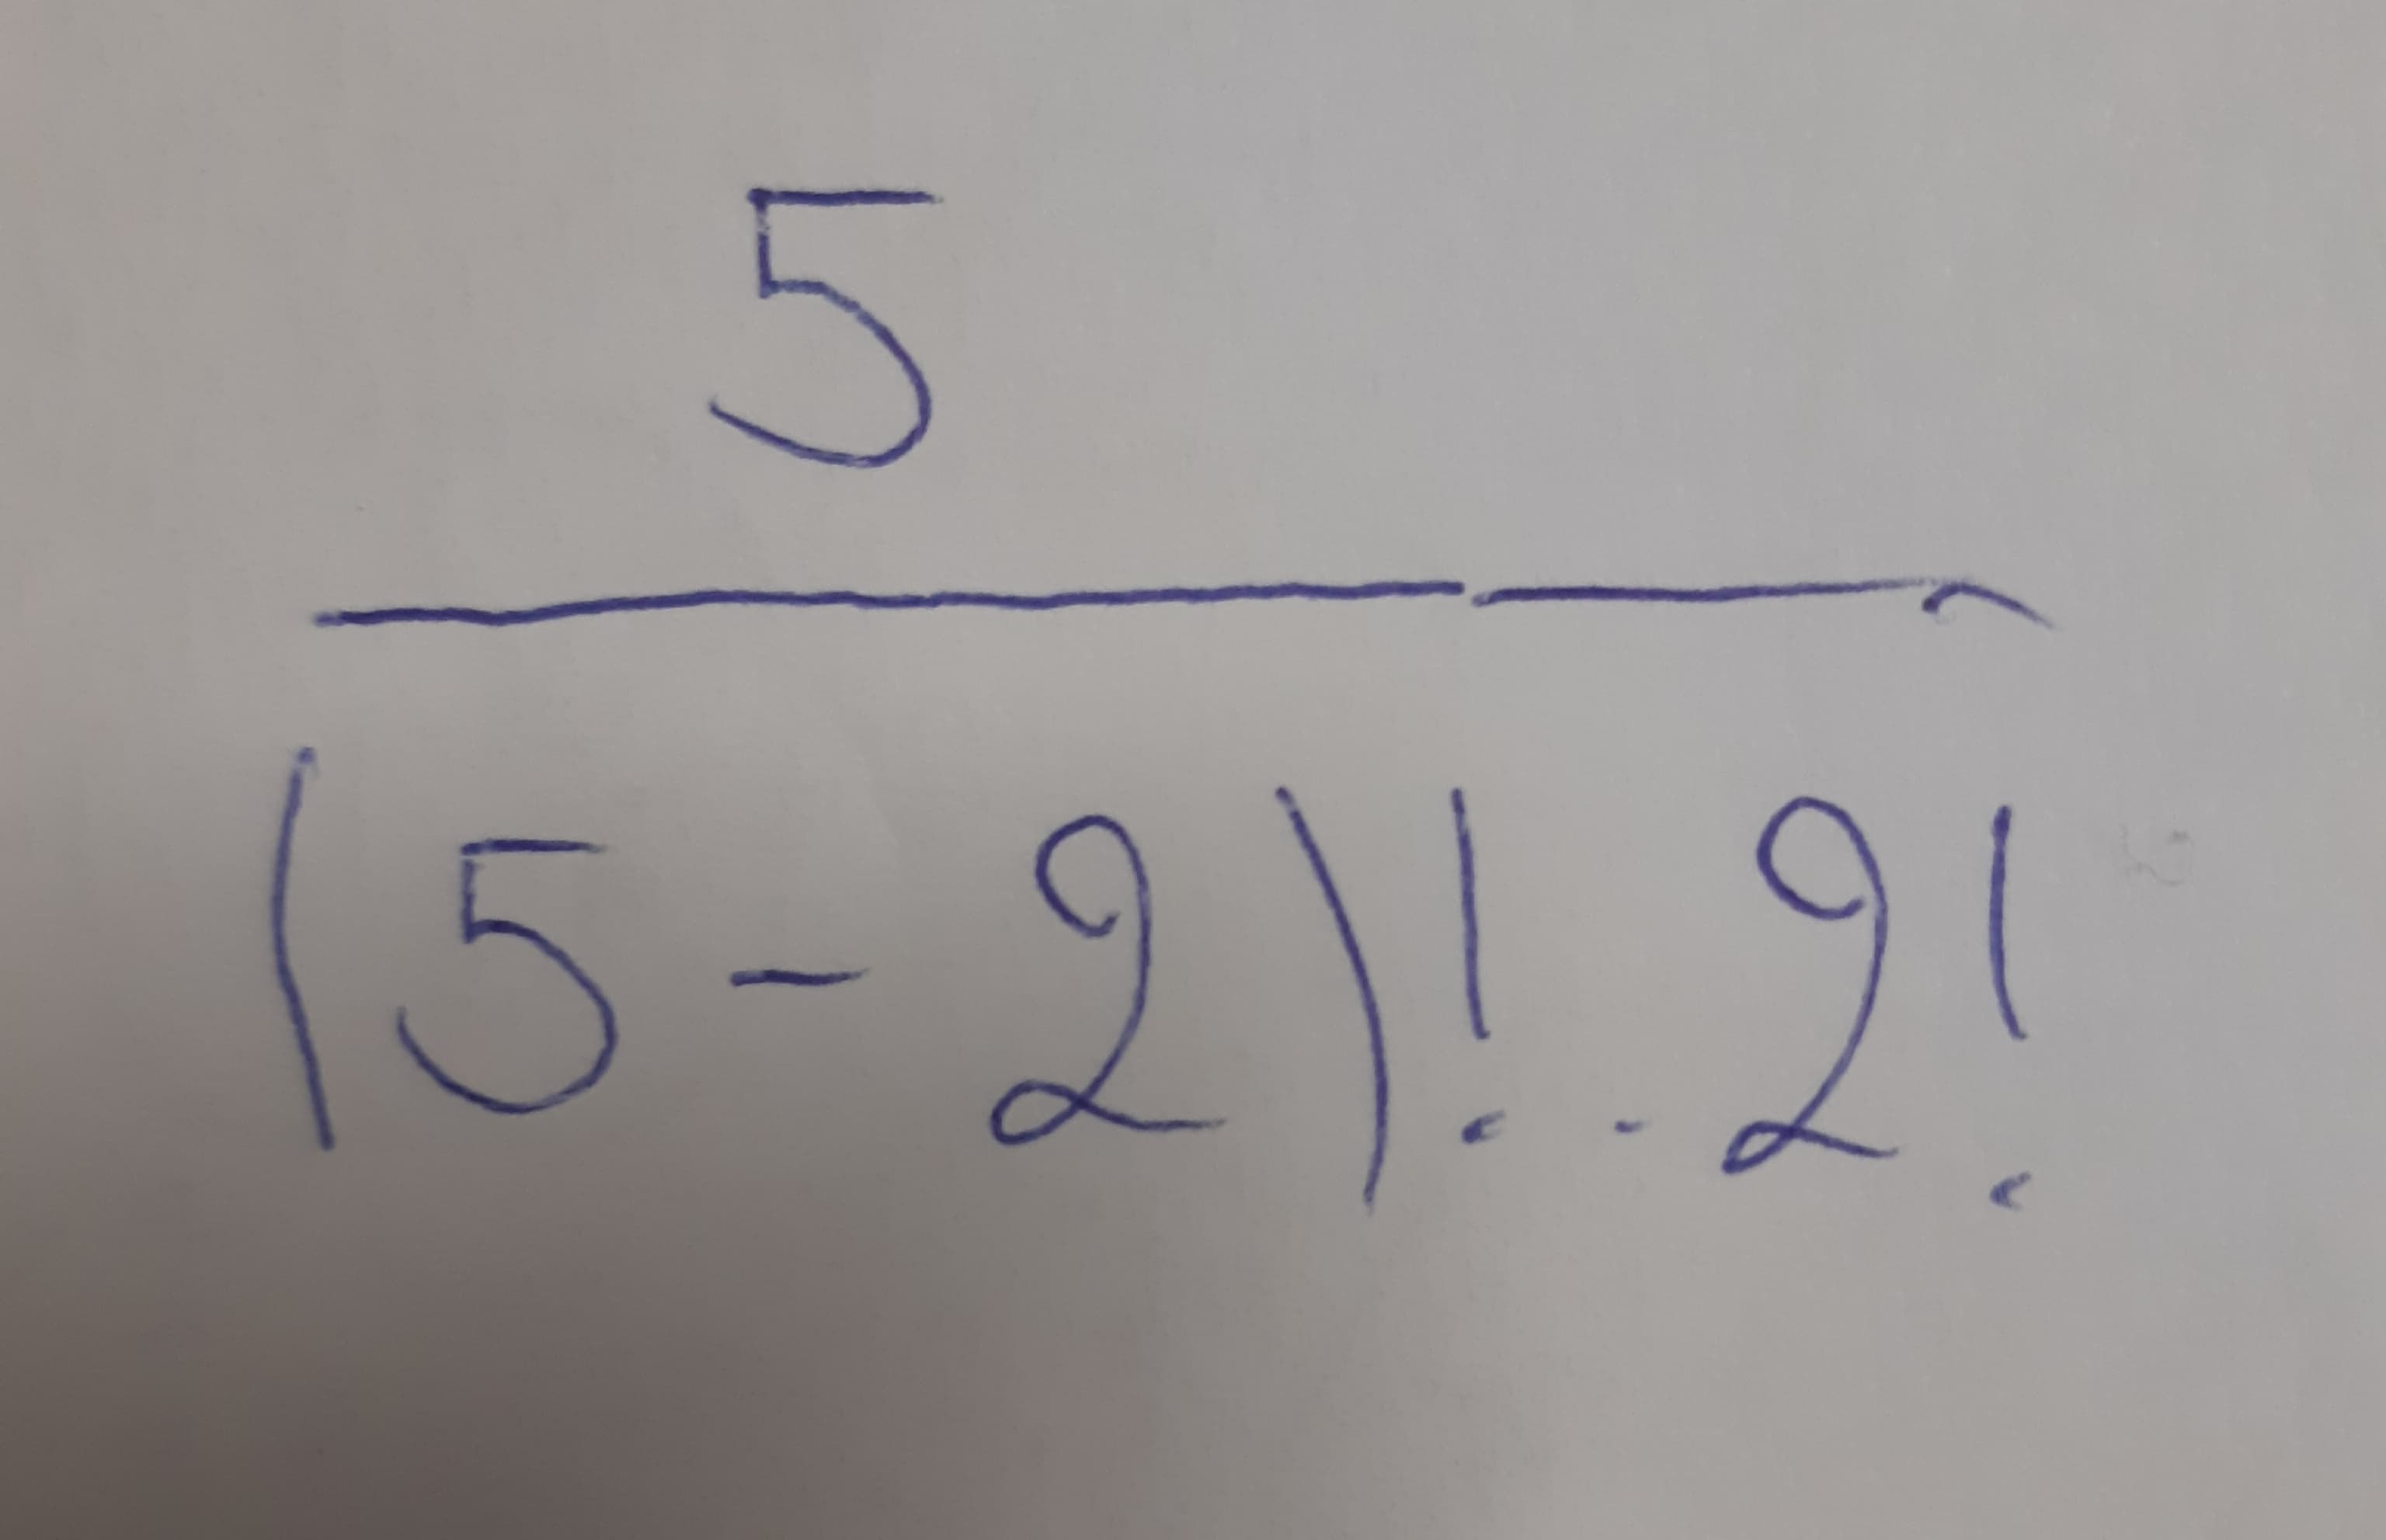 5
(5-2)! . 2!